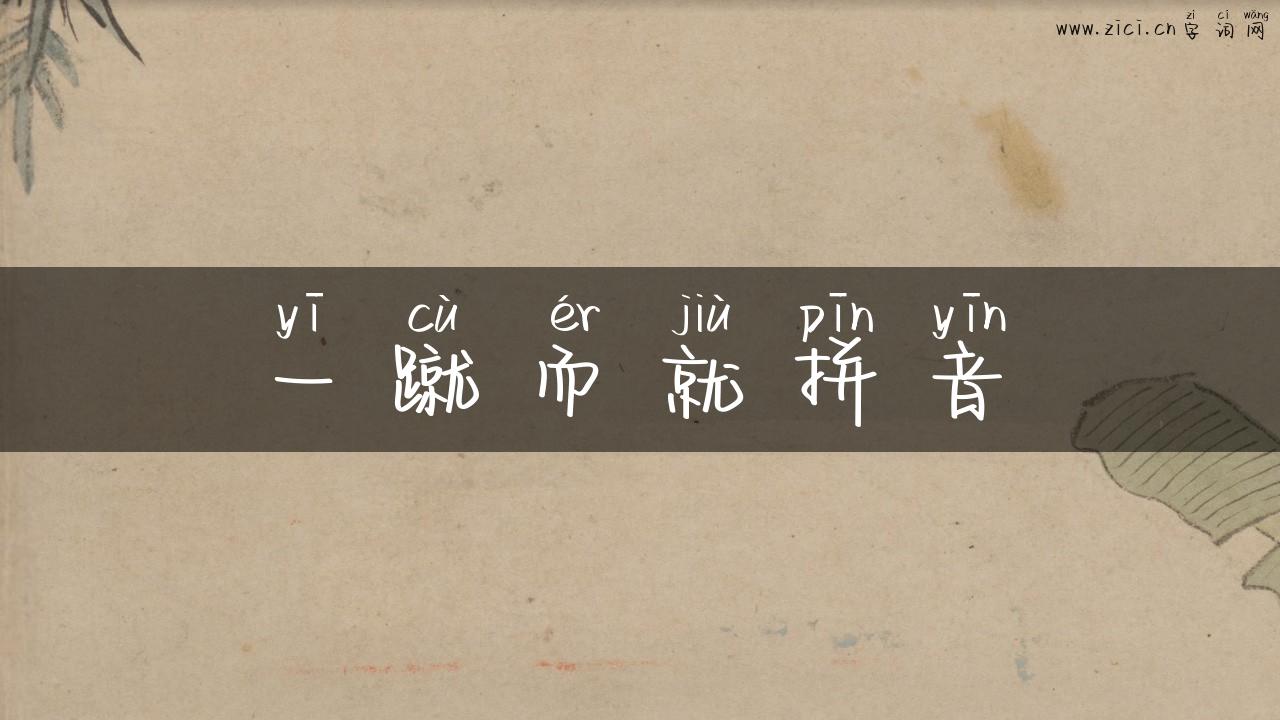 zì cí wǎng
www.zici.cn 字词网
yī cù ér jiù pīn yīn
一蹴而就拼音